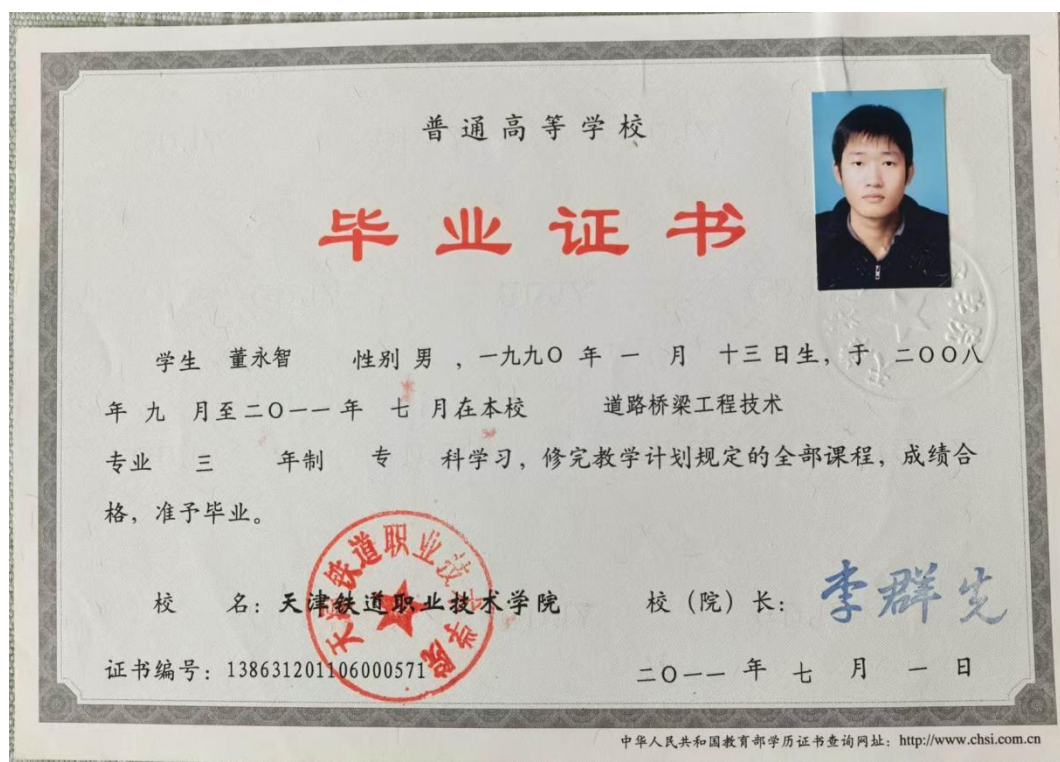 普通高等学校
毕业证书
学生 董永智 性别 男 ，一九九〇 年 一 月 十三 日生，于 二〇〇八
年 九 月至 二〇一一 年 七 月在本校 道路桥梁工程技术
专业 三 年制 专 科学习，修完教学计划规定的全部课程，成绩合
格，准予毕业。
天津铁道职业技术学院
校 名：天津铁道职业技术学院 校（院）长：李群先
证书编号：138631201106000571 二〇一一 年 七 月 一 日
中华人民共和国教育部学历证书查询网址：http://www.chsi.com.cn